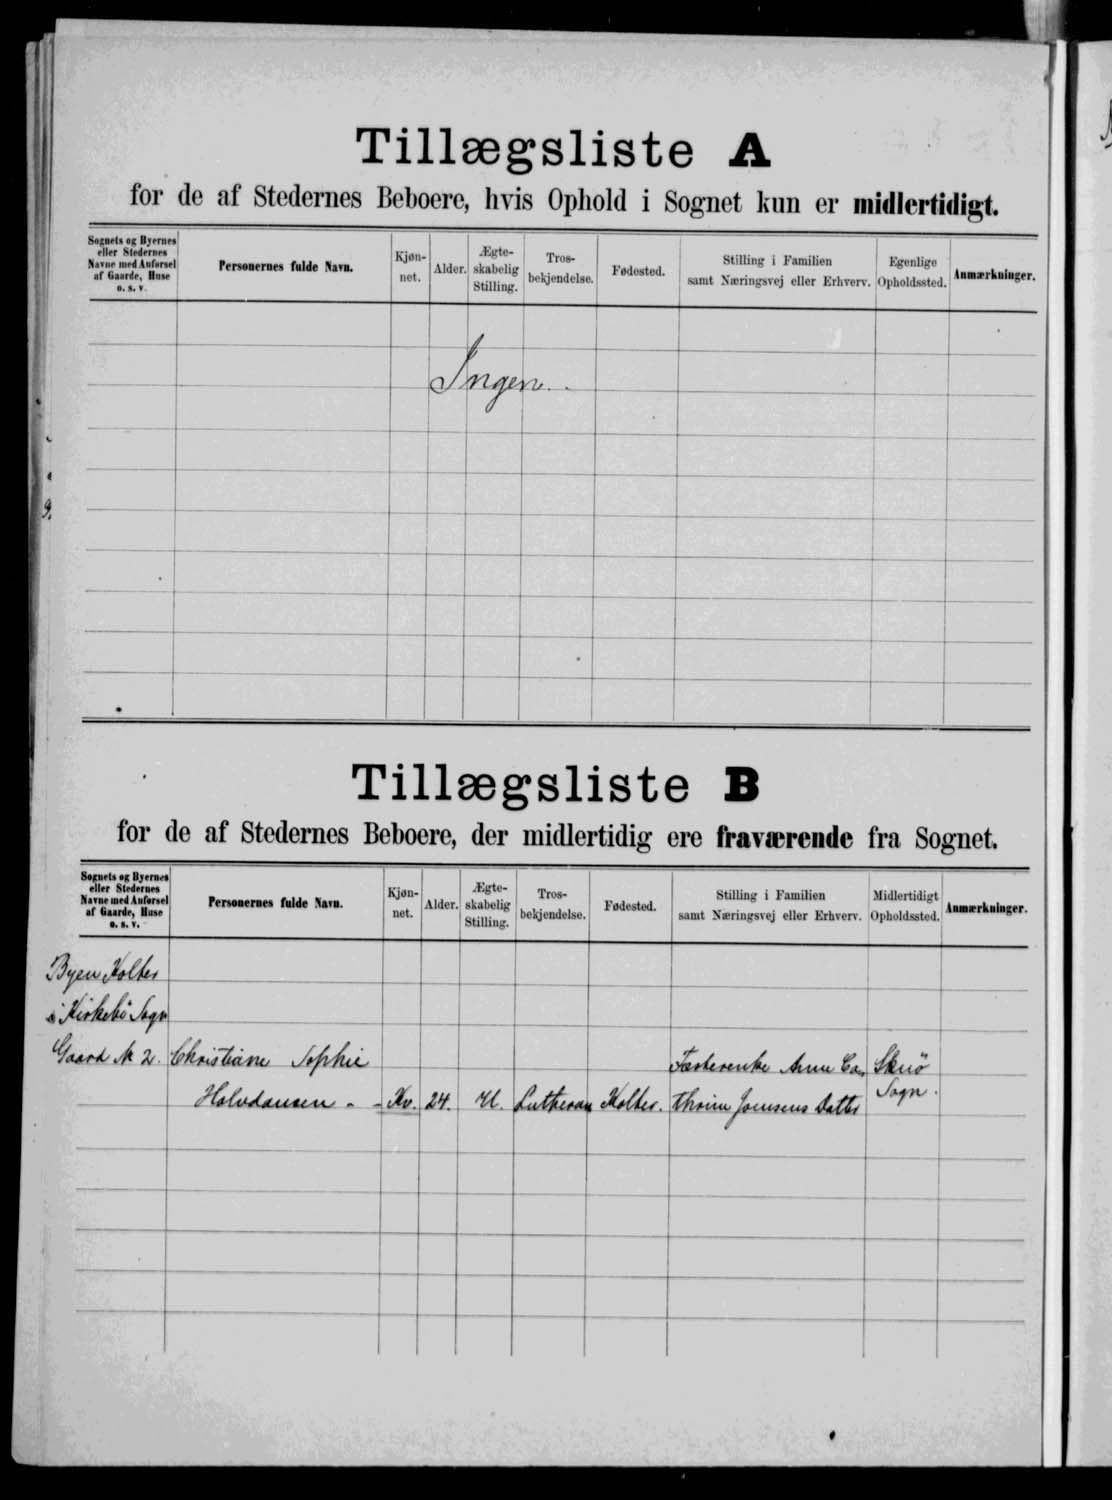 Tillægsliste A
for de af Stedernes Beboere, hvis Ophold i Sognet kun er midlertidigt.
Sognets og Byernes eller Stedernes Navne med Anførsel af Gaarde, Huse o. s. v.
Personernes fulde Navn.
Kjøn-net.
Alder.
Ægte-skabelig Stilling.
Tros-bekjendelse.
Fødested.
Stilling i Familien samt Næringsvej eller Erhverv.
Egenlige Opholdssted.
Anmærkninger.
Ingen.
Tillægsliste B
for de af Stedernes Beboere, der midlertidig ere fraværende fra Sognet.
Sognets og Byernes eller Stedernes Navne med Anførsel af Gaarde, Huse o. s. v.
Personernes fulde Navn.
Kjøn-net.
Alder.
Ægte-skabelig Stilling.
Tros-bekjendelse.
Fødested.
Stilling i Familien samt Næringsvej eller Erhverv.
Midlertidigt Opholdssted.
Anmærkninger.
Byen Kolter
i Kirkebö Sogn
Gaard № 2. Christiane Sophie Fæsterenke Anne Ca Skuö
Halvdansen - - Kv. 24. U. Lutheran Kolter. thrine Joensens Datter Sogn.